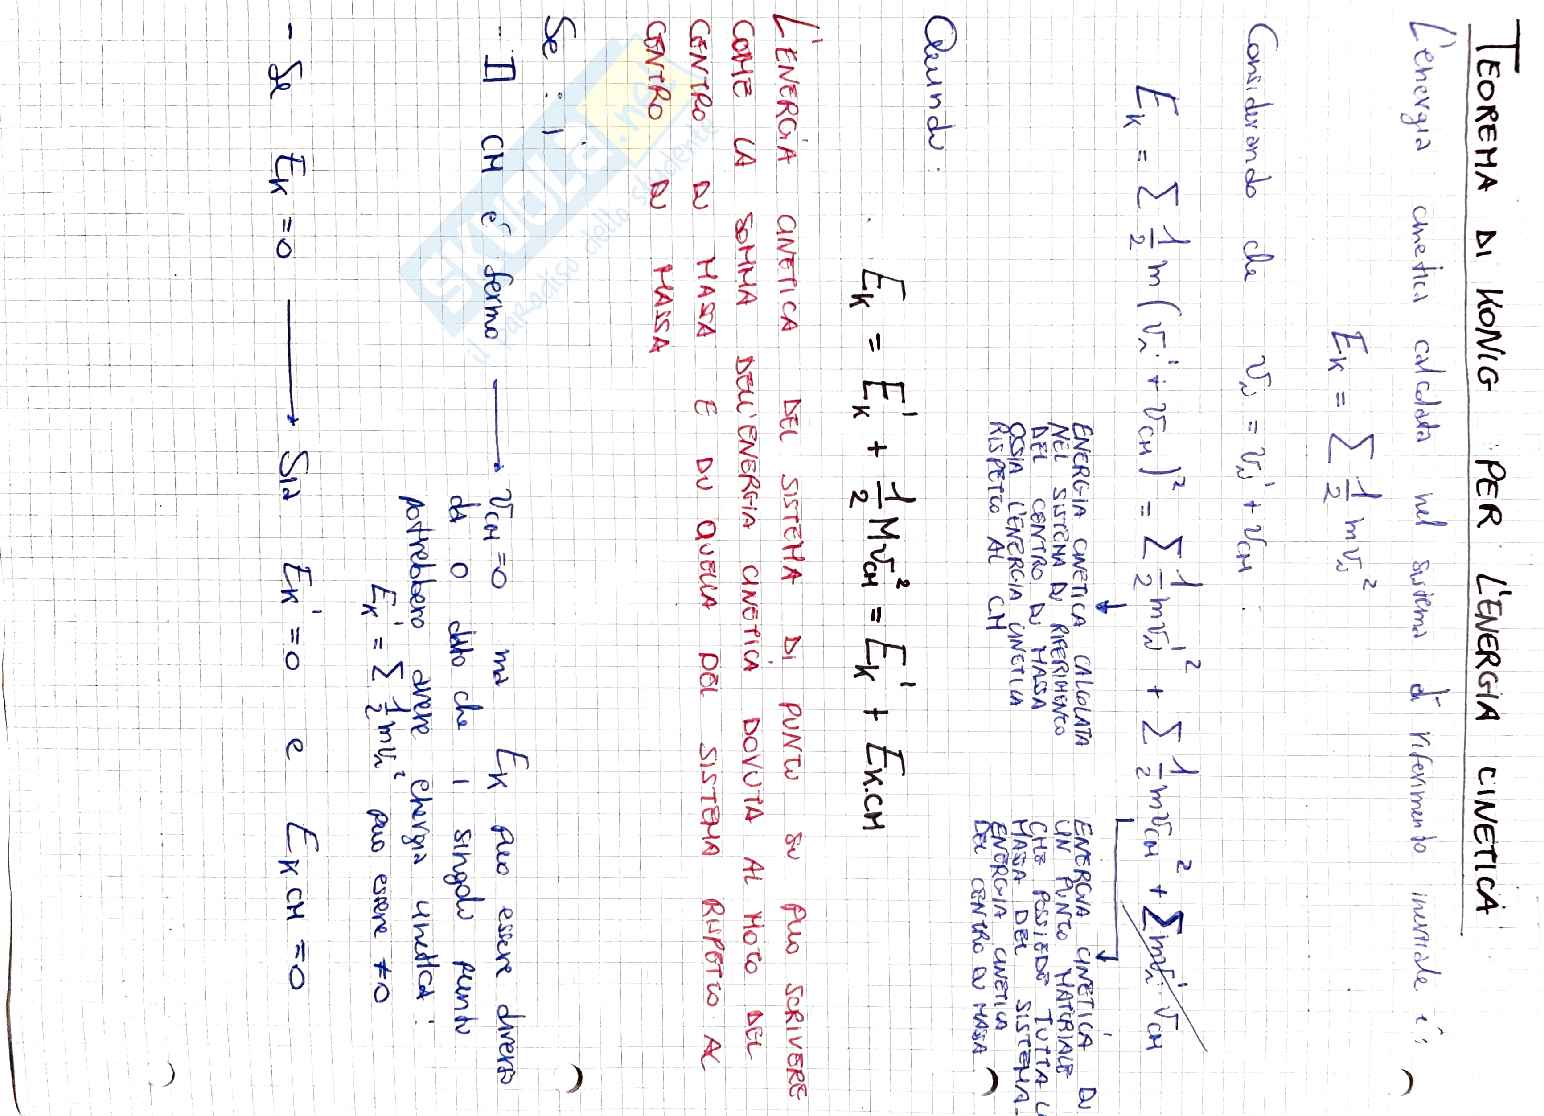 TEOREMA DI KONIG PER L'ENERGIA CINETICA
L'energia cinetica calcolata nel sistema di riferimento inerziale è:
E_K = Σ 1/2 m v_i²
Considerando che v_i = v_i' + v_CM
E_K = Σ 1/2 m (v_i' + v_CM)² = Σ 1/2 m v_i'² + Σ 1/2 m v_CM² + Σ m v_i' · v_CM
ENERGIA CINETICA CALCOLATA
NEL SISTEMA DI RIFERIMENTO
DEL CENTRO DI MASSA
OSSIA L'ENERGIA CINETICA
RISPETTO AL CM
ENERGIA CINETICA DI
UN PUNTO MATERIALE
CHE POSSIEDE TUTTA L
MASSA DEL SISTEMA -
ENERGIA CINETICA
DEL CENTRO DI MASSA
Quindi:
E_K = E_K' + 1/2 M v_CM² = E_K' + E_K.CM
L'ENERGIA CINETICA DEL SISTEMA DI PUNTI SI PUO SCRIVERE
COME LA SOMMA DELL'ENERGIA CINETICA DOVUTA AL MOTO DEL
CENTRO DI MASSA E DI QUELLA DEL SISTEMA RISPETTO AL
CENTRO DI MASSA
Se:
- Il CM è fermo → v_CM = 0 ma E_K puo essere diverso
da 0 dato che i singoli punti
potrebbero avere energia cinetica:
E_K' = Σ 1/2 m v_i² puo essere ≠ 0
- Se E_K = 0 → Sia E_K' = 0 e E_K CM = 0
SKUOLA.net
il paradiso dello studente